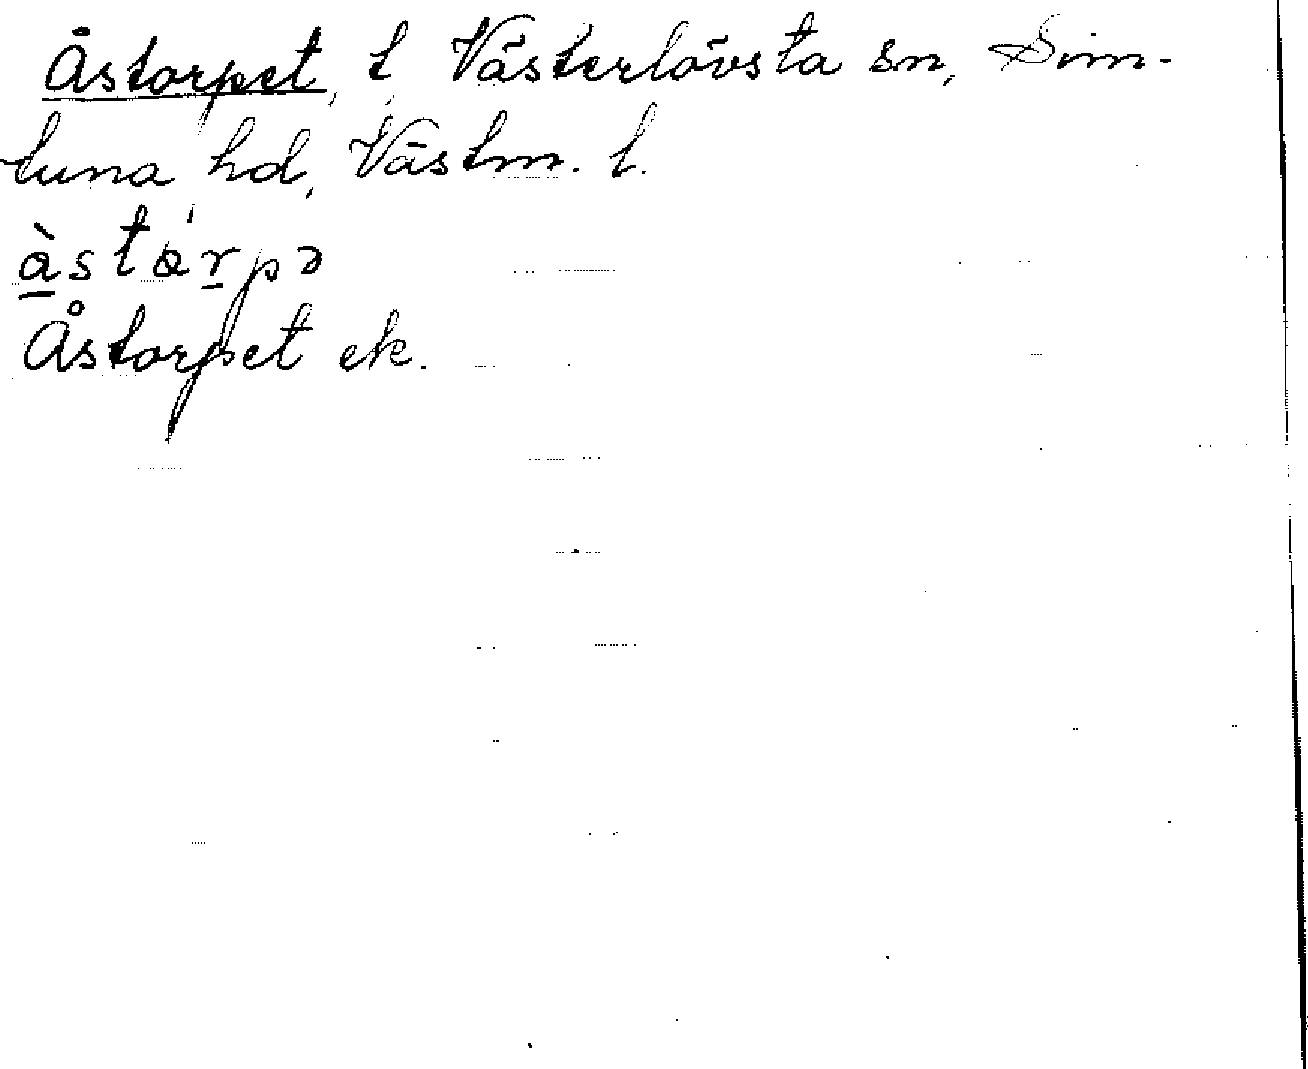 Åstorpet, t Västerlövsta sn, Sim-
tuna hd, Västm. l.
å̀stǻrpə
Åstorpet ek.